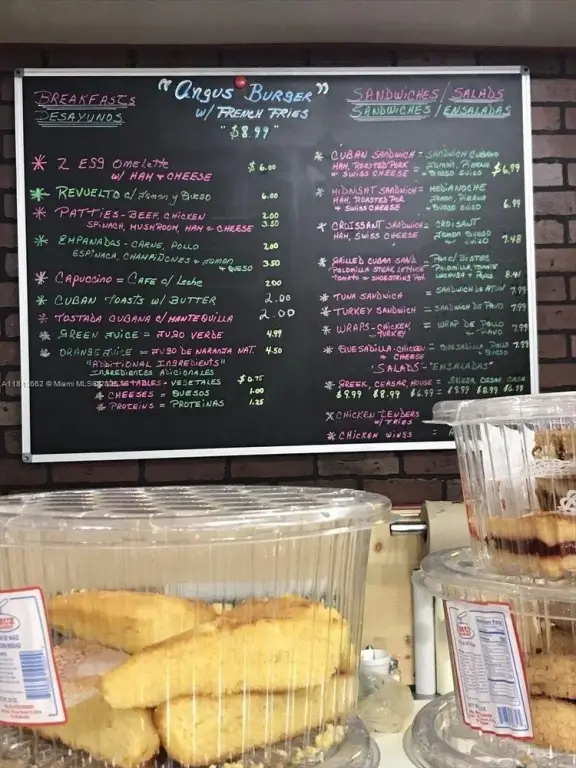 "Angus Burger"
w/ French Fries
"$8.99"
Breakfasts
Desayunos
* 2 Egg Omelette $6.00
w/ Ham & Cheese
* Revuelto c/ Jamon y Queso 6.00
* Patties - Beef, Chicken 2.00
Spinach, Mushroom, Ham & Cheese 3.50
* Empanadas - Carne, Pollo 2.00
Espinaca, Champiñones + Jamon & Queso 3.50
* Capuccino = Cafe c/ Leche 2.00
* Cuban Toasts w/ Butter 2.00
* Tostada Cubana c/ Mantequilla 2.00
* Green Juice = Jugo Verde 4.99
* Orange Juice = Jugo de Naranja Nat. 4.50
"Additional Ingredients"
Ingredientes Adicionales
* Vegetables - Vegetales $0.75
* Cheeses = Quesos 1.00
* Proteins = Proteinas 1.25
Sandwiches / Salads
Sandwiches / Ensaladas
* Cuban Sandwich = Sandwich Cubano
Ham, Roasted Pork Jamon, Pierna
& Swiss Cheese = Queso Suizo $6.99
* Midnight Sandwich = Medianoche
Ham, Roasted Por Jamon, Pierna
& Swiss Cheese & Queso Suizo 6.99
* Croissant Sandwich = Croisant
Ham, Swiss Cheese Jamon Queso Suizo 7.48
* Grilled Cuban Sand. Pan c/ Bistec
Palomilla Steak Lettuce Palomilla, Tomate
Tomato & Shoestring Pot. Lechuga & Papas 8.41
* Tuna Sandwich = Sandwich de Atun 7.99
* Turkey Sandwich = Sandwich de Pavo 7.99
* Wraps - Chicken, = Wrap de Pollo 7.99
Turkey Pavo
* Quesadilla - Chicken = Quesadilla Pollo 7.99
& Cheese & Queso
"Salads" - "Ensaladas"
* Greek, Ceasar, House = Griega Cesar Casa
$9.99 $8.99 $6.99 = $9.99 $8.99 $6.99
* Chicken Tenders
w/ Fries
* Chicken Wings =
© Miami MLS